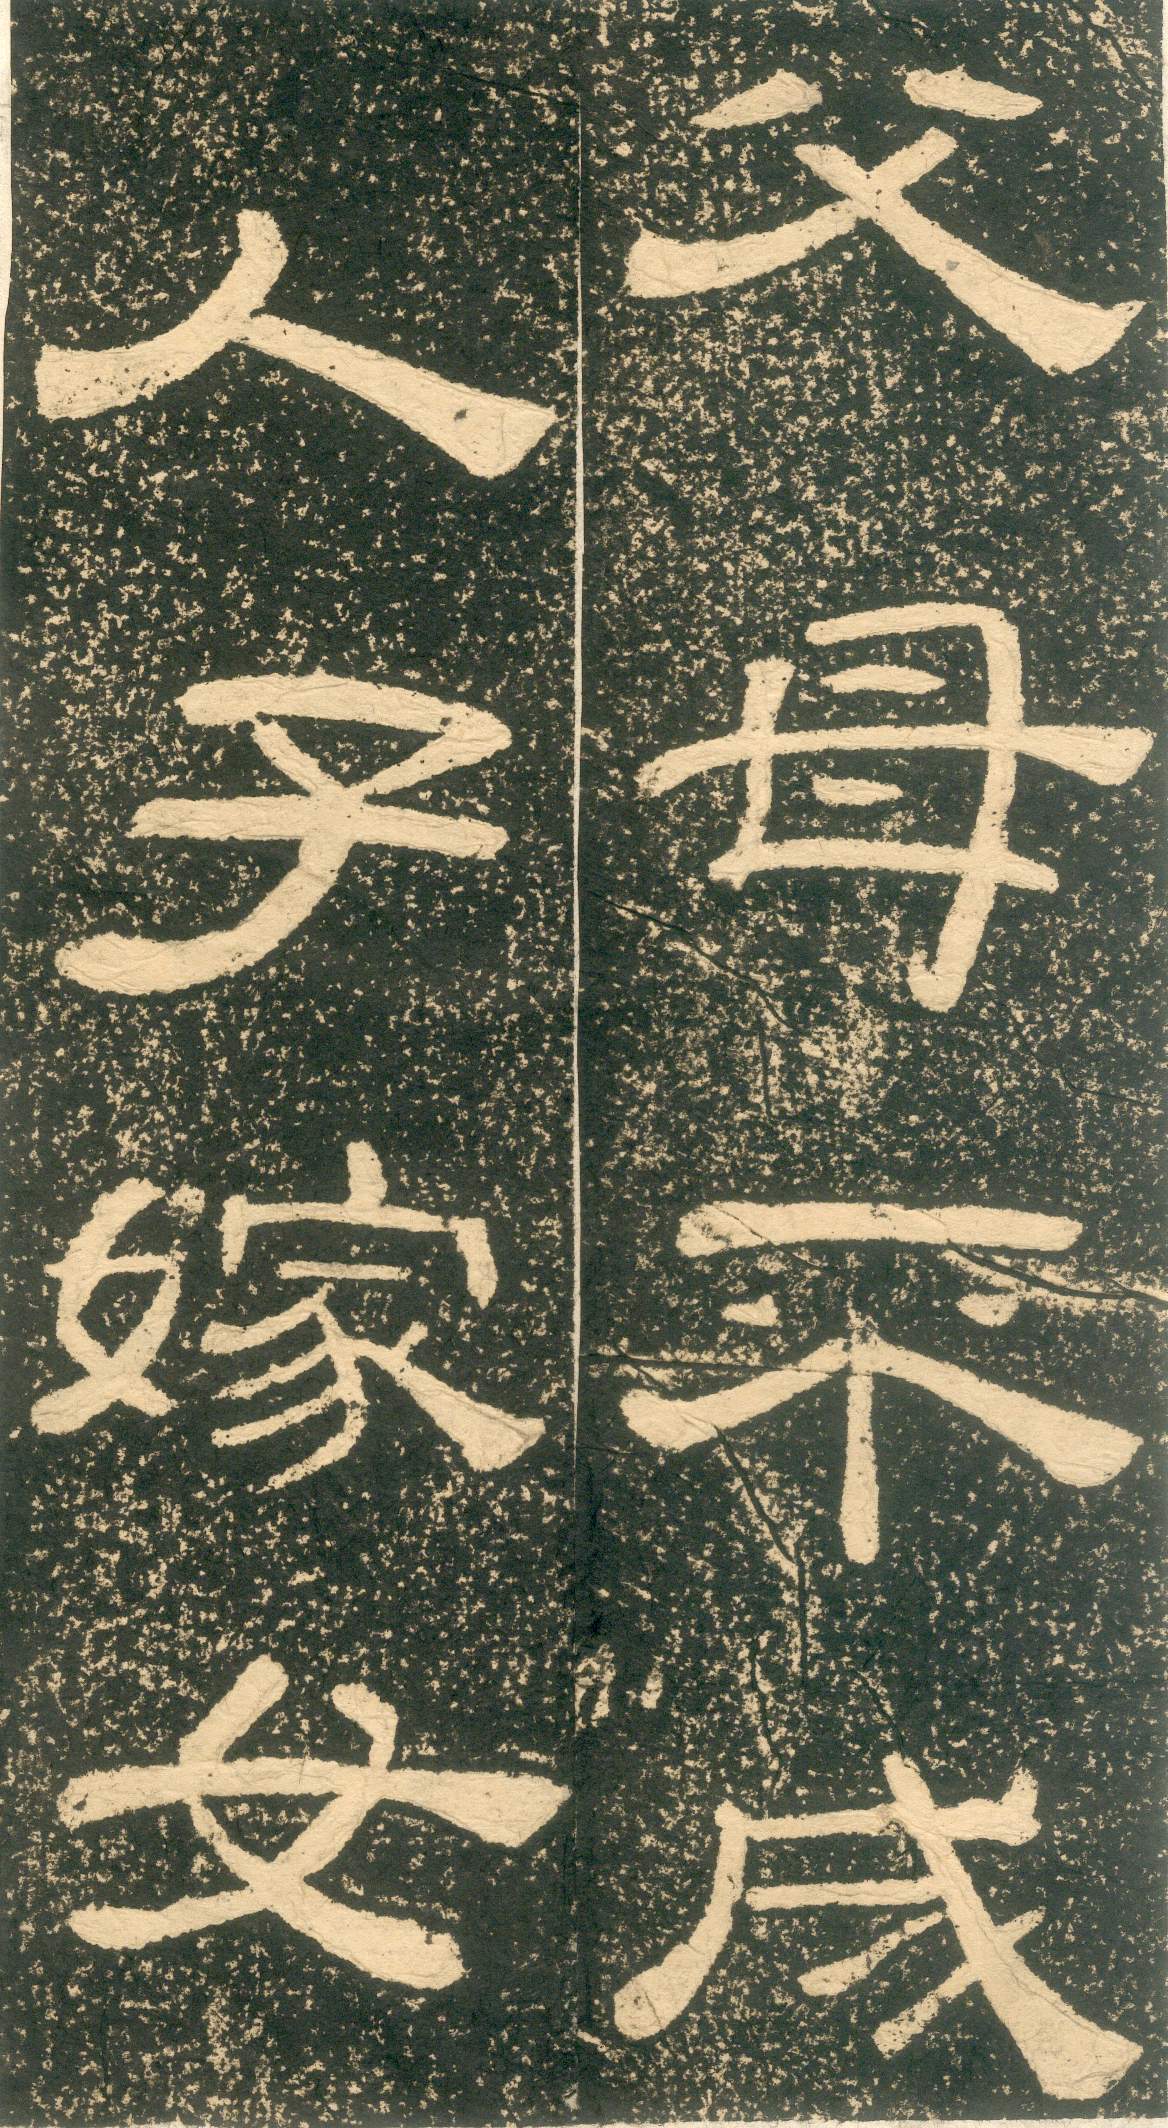 父母不成
人子嫁女